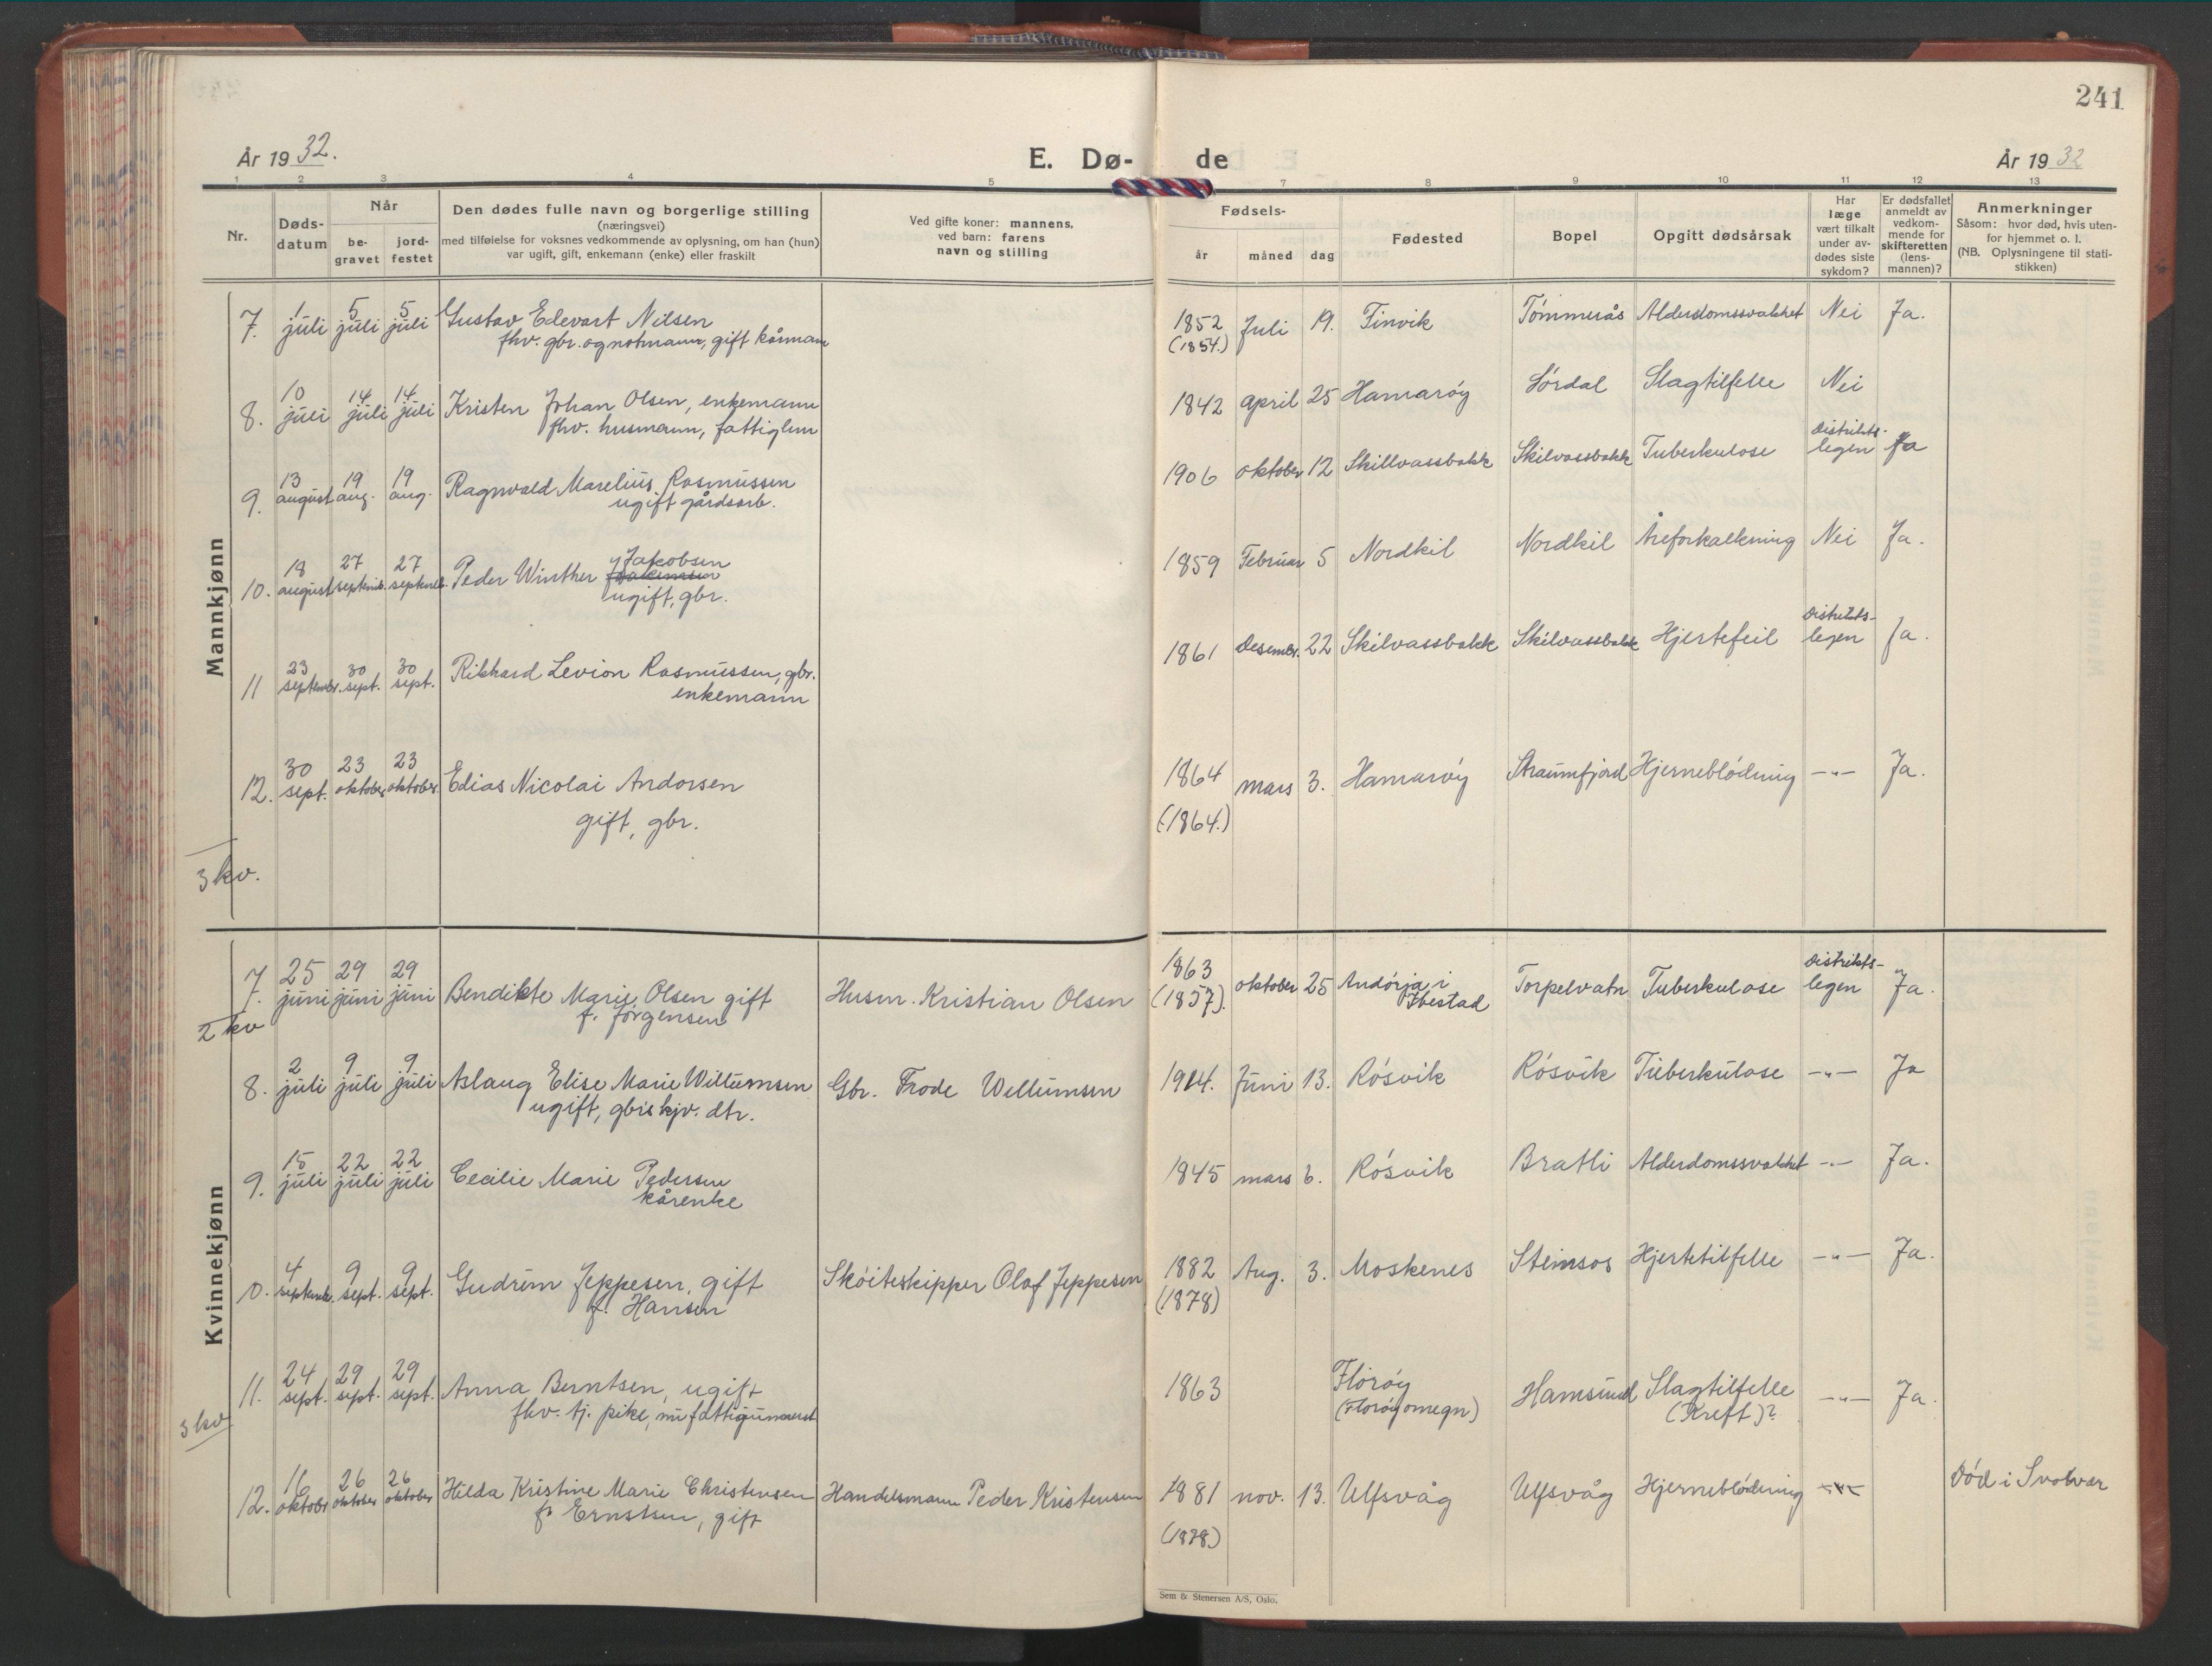 241
År 1932.
E. Dø-de
År 1932
1 2 3 4 5 7 8 9 10 11 12 13
Nr.
Døds-
datum
Når
be-
gravet
jord-
festet
Den dødes fulle navn og borgerlige stilling
(næringsvei)
med tilføielse for voksnes vedkommende av oplysning, om han (hun)
var ugift, gift, enkemann (enke) eller fraskilt
Ved gifte koner: mannens,
ved barn: farens
navn og stilling
Fødsels-
år måned dag
Fødested
Bopel
Opgitt dødsårsak
Har
læge
vært tilkalt
under av-
dødes siste
sykdom?
Er dødsfallet
anmeldt av
vedkom-
mende for
skifteretten
(lens-
mannen)?
Anmerkninger
Såsom: hvor død, hvis uten-
for hjemmet o. l.
(NB. Oplysningene til stati-
stikken)
Mannkjønn
7. 1 juli 5 juli 5 juli Gustav Edevart Nilsen 1852 Juli 19. Finvik Tømmerås Alderdomssvakhet Nei Ja.
fhv. gbr. og notmann, gift kårmann (1854.)
8. 10 juli 14 juli 14 juli Kristen Johan Olsen, enkemann 1842 april 25 Hamarøy Sørdal Slagtilfelle Nei
fhv. husmann, fattiglem
9. 13 august 19 aug. 19 aug. Ragnvald Marelius Rasmussen 1906 oktober 12 Skillvassbakk Skilvassbakk Tuberkulose Distrikts-legen Ja
ugift gårdsarb.
10. 18 august 27 septemb. 27 septemb. Peder Winther Jakobsen 1859 Februar 5 Nordkil Nordkil Åreforkalkning Nei Ja.
ugift, gbr.
11 23 septembr. 30 sept. 30 sept. Rikhard Levion Rasmussen, gbr. 1861 Desembr. 22 Skilvassbakk Skilvassbakk Hjertefeil Distrikts-legen Ja.
enkemann
12. 30 sept. 23 oktober 23 oktober Edias Nicolai Andorsen 1864 mars 3. Hamarøy Straumfjord Hjerneblødning -"- Ja.
gift, gbr. (1864.)
3 kv.
Kvinnekjønn
7. 25 juni 29 juni 29 juni Bendikte Marie Olsen gift Husm. Kristian Olsen 1863 oktober 25 Andørja i Ibestad Torpelvatn Tuberkulose Distrikts-legen Ja.
f. Jørgensen (1857).
2 kv
8. 2 juli 9 juli 9 juli Aslaug Elise Marie Willumsen Gbr. Frode Willumsen 1914. Juni 13. Røsvik Røsvik Tuberkulose -"- Ja
ugift, gbr's hjv. dtr.
9. 15 juli 22 juli 22 juli Cecilie Marie Pedersen 1845 mars 6. Røsvik Bratli Alderdomssvakhet -"- Ja.
kårenke
10. 4 septemb. 9 sept. 9 sept. Gudrun Jeppesen, gift Skøiteskipper Olaf Jeppesen 1882 Aug. 3. Moskenes Steinsos Hjertetilfelle -"- Ja.
f. Hansen (1878)
11. 24 sept. 29 sept. 29 sept. Anna Berntsen, ugift 1863 Florøy Hamsund Slagtilfelle -"- Ja.
fhv. tj. pike, nu fattigunderst (Florøy omegn) (Kreft)?
3 kv
12. 16 oktober 26 oktober 26 oktober Hilda Kristine Marie Christensen Handelsmann Peder Kristensen 1881 nov. 13. Ulfsvåg Ulfsvåg Hjerneblødning Død i Svolvær
f. Ernstsen, gift (1878.)
Sem & Stenersen A/S, Oslo.